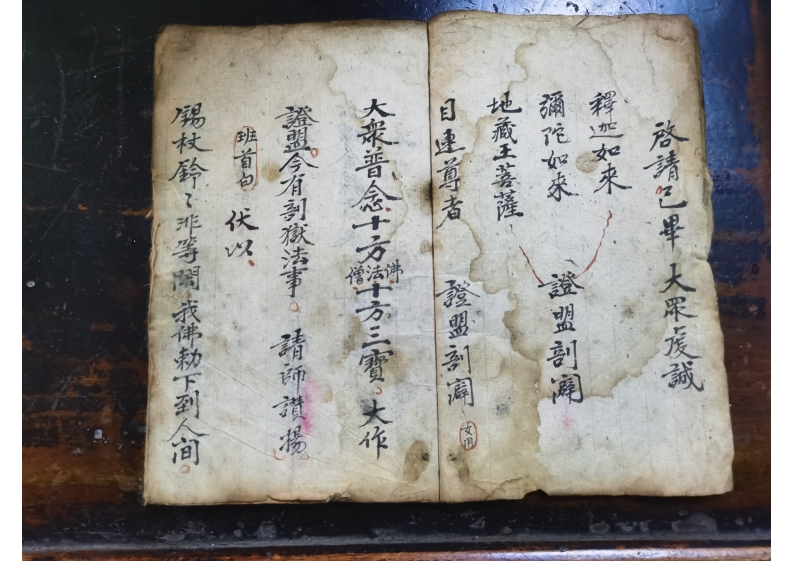 啓請已畢 大眾虔誠
釋迦如來
彌陀如來 證盟剖開
地藏王菩薩
目連尊者 證盟剖開 女用
大衆普念十方佛法僧十方三寶。大作
證盟今有剖獄法事。 請師讃揚
班首白 伏以、
錫杖鈴〻非等閑。我佛勅下到人间。